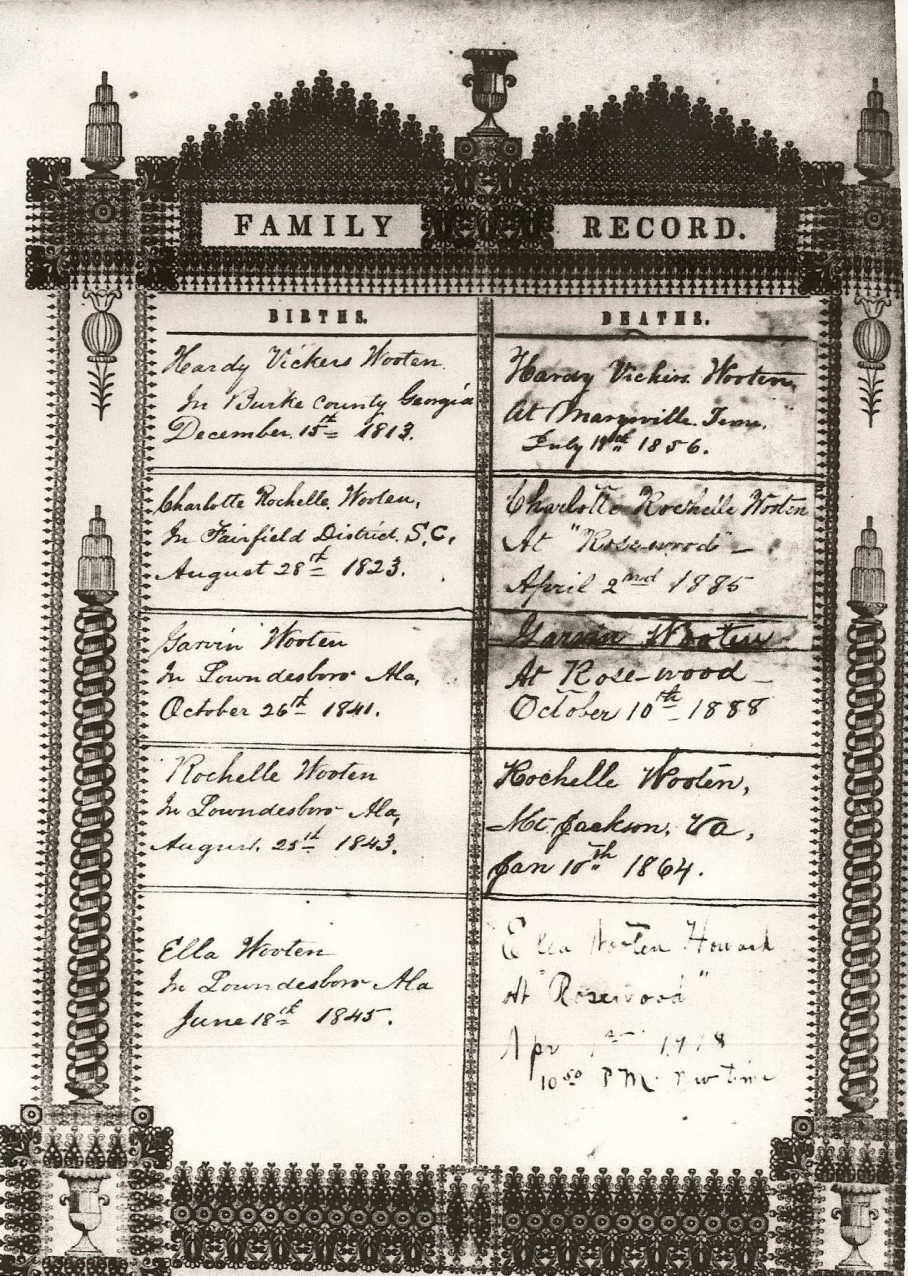 FAMILY RECORD.
BIRTHS.
Hardy Vickers Wooten
In Burke County Georgia
December 15th 1813.
Charlotte Rochelle Wooten,
In Fairfield District, S.C.,
August 28th 1823.
Garvin Wooten
In Lowndesboro Ala,
October 26th 1841.
Rochelle Wooten
In Lowndesboro Ala,
August. 25th 1843.
Ella Wooten
In Lowndesboro Ala
June 18th 1845.
DEATHS.
Hardy Vickers Wooten,
At Maryville Tenn.
July 1856.
Charlotte Rochelle Wooten
At "Rose-wood" –
April 2nd 1885
Garvin Wooten
At Rose-wood –
October 10th 1888
Rochelle Wooten,
Mt Jackson, Va,
Jan 10th 1864.
Ella Wooten Howard
At "Rosewood"
Apr 1918
10 50 P.M. new time